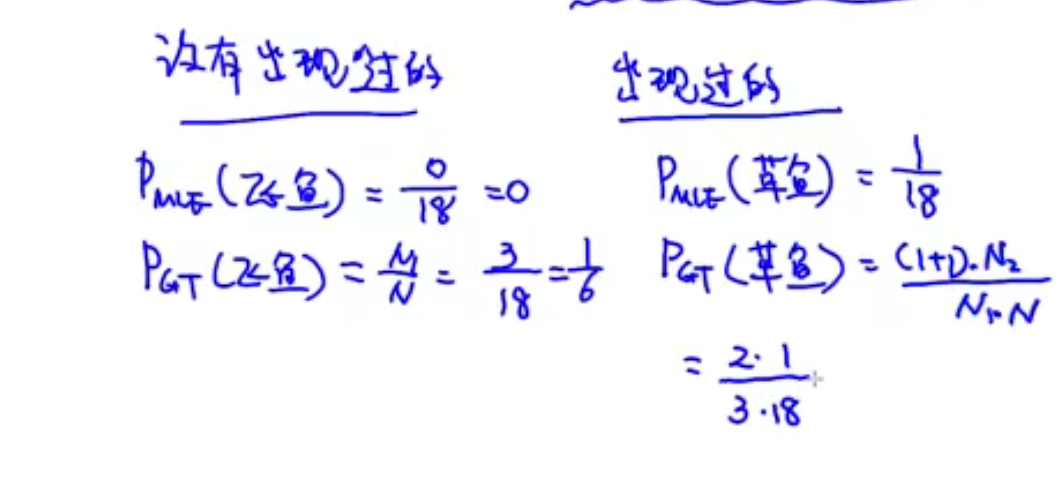 没有出现过的
P_MLE(飞鱼) = 0/18 = 0
P_GT(飞鱼) = N₁/N = 3/18 = 1/6
出现过的
P_MLE(草鱼) = 1/18
P_GT(草鱼) = (1+1)·N₂/N₁·N
= 2·1/3·18